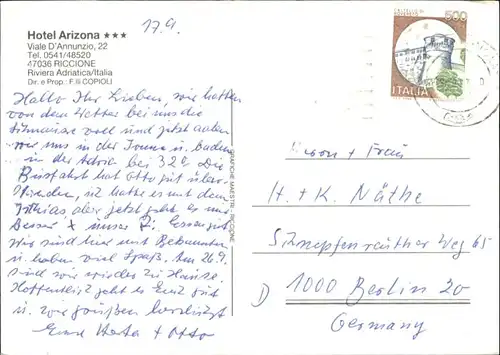 Hotel Arizona ★★★
Viale D'Annunzio, 22
Tel. 0541/48520
47036 RICCIONE
Riviera Adriatica/Italia
Dir. e Prop.: F.lli COPIOLI
17.9.
Hallo Ihr Lieben, wir hatten
von dem Wetter bei uns die
voll und jetzt aalen
wir uns in der Sonne u. baden
in der Adria bei 32°. Die
Busfahrt hat Otto gut über-
standen, ich hatte es mit dem
Ischias, aber jetzt geht es mir
besser
Wir sind hier mit Bekannten
u. haben viel Spaß. Am 26.9.
sind wir wieder zu Hause.
Hoffentlich geht es Euch gut
u. wir grüßen herzlichst
Eure Herta + Otto
GRAFICHE MAESTRI - RICCIONE
500
ITALIA
Herrn + Frau
H. + K. Näthe
Schnepfenreuther Weg 65
D 1000 Berlin 20
Germany